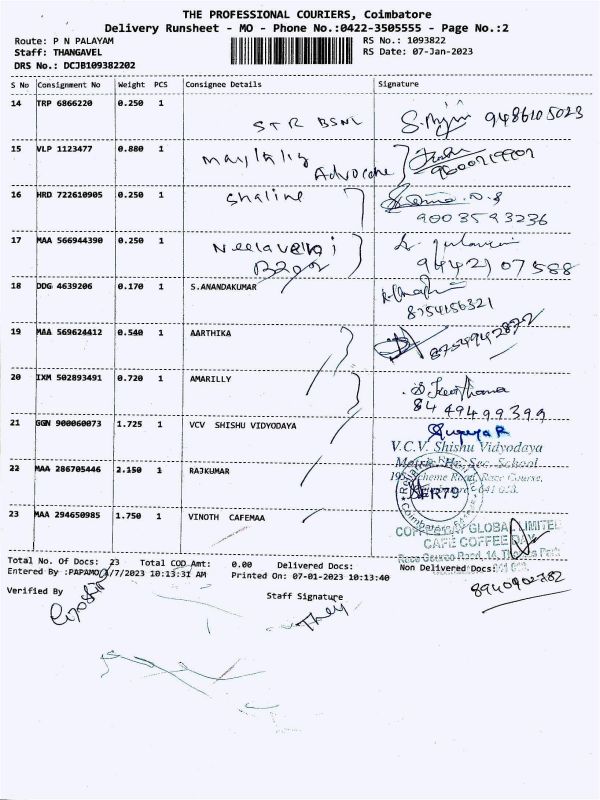 THE PROFESSIONAL COURIERS, Coimbatore
Delivery Runsheet - MO - Phone No.:0422-3505555 - Page No.:2
Route: P N PALAYAM
RS No.: 1093822
Staff: THANGAVEL
RS Date: 07-Jan-2023
DRS No.: DCJB109382202
S No Consignment No Weight PCS Consignee Details Signature
14 TRP 6866220 0.250 1 STR BSNL 9486105023
15 VLP 1123477 0.880 1 Advocate
16 HRD 722610905 0.250 1 Shaline
9003593236
17 MAA 566944390 0.250 1
9442107588
18 DDG 4639206 0.170 1 S.ANANDAKUMAR
8754156321
19 MAA 569624412 0.540 1 AARTHIKA 8754942872
20 IXM 502893491 0.720 1 AMARILLY
8449499399
21 GGN 900060073 1.725 1 VCV SHISHU VIDYODAYA
V.C.V. Shishu Vidyodaya
Matric. Hr. Sec. School
Scheme Road, Race Course,
22 MAA 286705446 2.150 1 RAJKUMAR
23 MAA 294650985 1.750 1 VINOTH CAFEMAA
COFFEE DAY GLOBAL LIMITED
CAFE COFFEE DAY
Race Course Road,
Total No. Of Docs: 23 Total COD Amt: 0.00 Delivered Docs: Non Delivered Docs:
Entered By :PAPAMO 10:13:31 AM Printed On: 07-01-2023 10:13:40
8940902782
Verified By Staff Signature